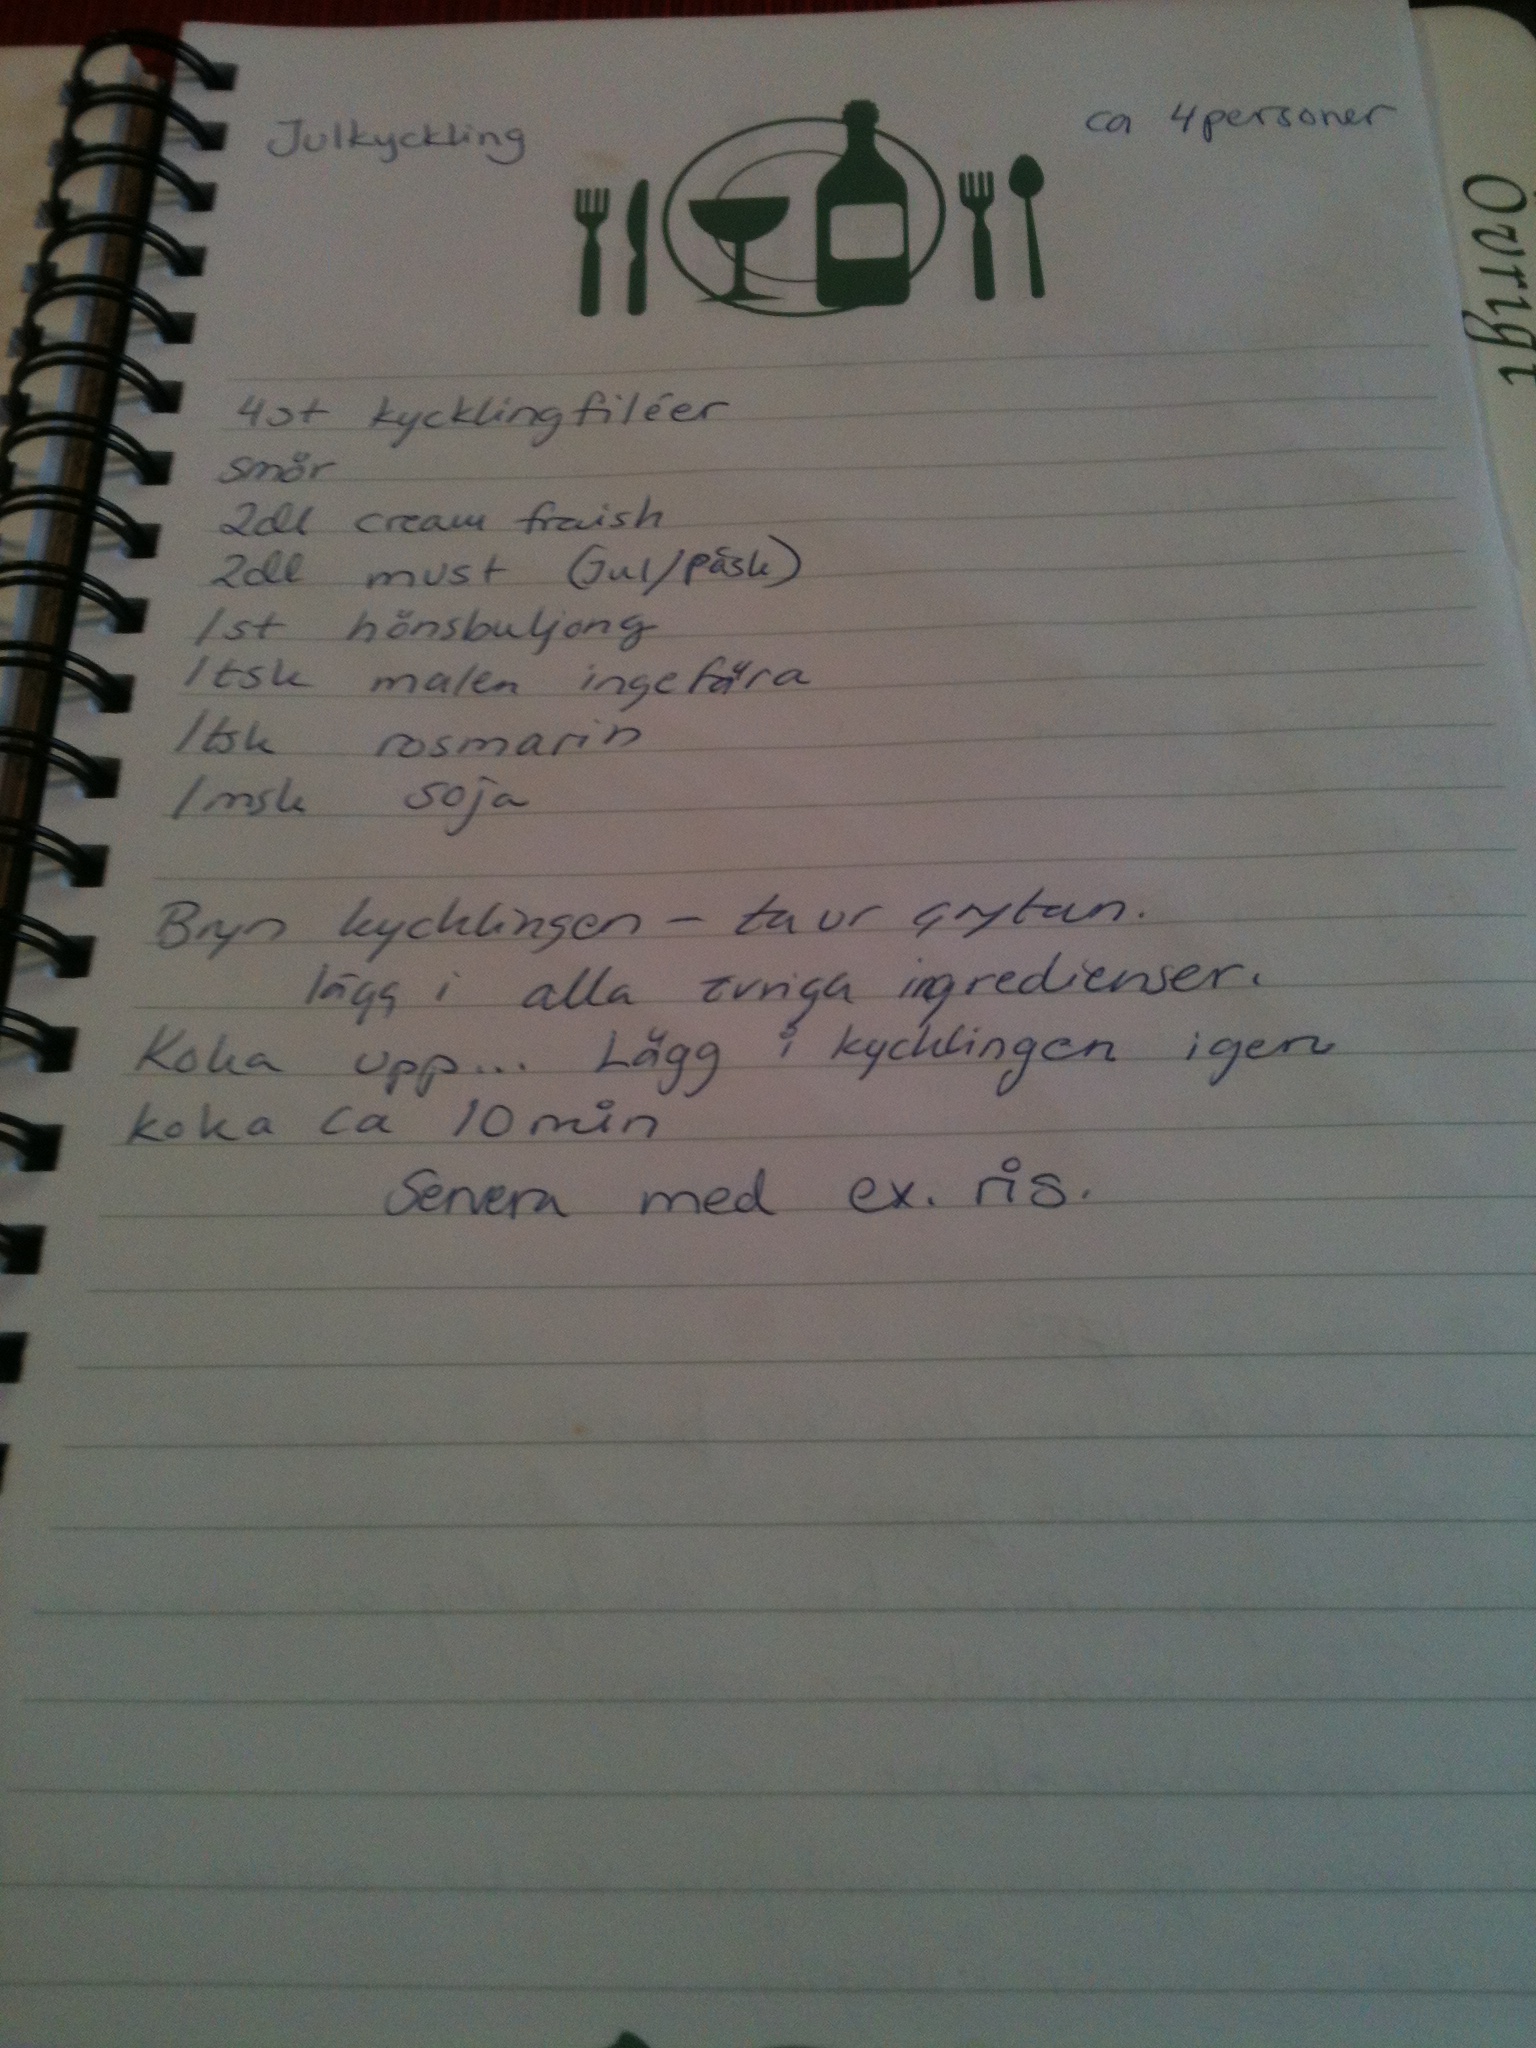 Julkyckling
ca 4personer
Övrigt
4st kycklingfiléer
smör
2dl cream fraish
2dl must (jul/påsk)
1st hönsbuljong
1tsk malen ingefära
1tsk rosmarin
1msk soja
Bryn kycklingen – ta ur grytan.
lägg i alla övriga ingredienser.
Koka upp... Lägg i kycklingen igen
koka ca 10min
Servera med ex. ris.